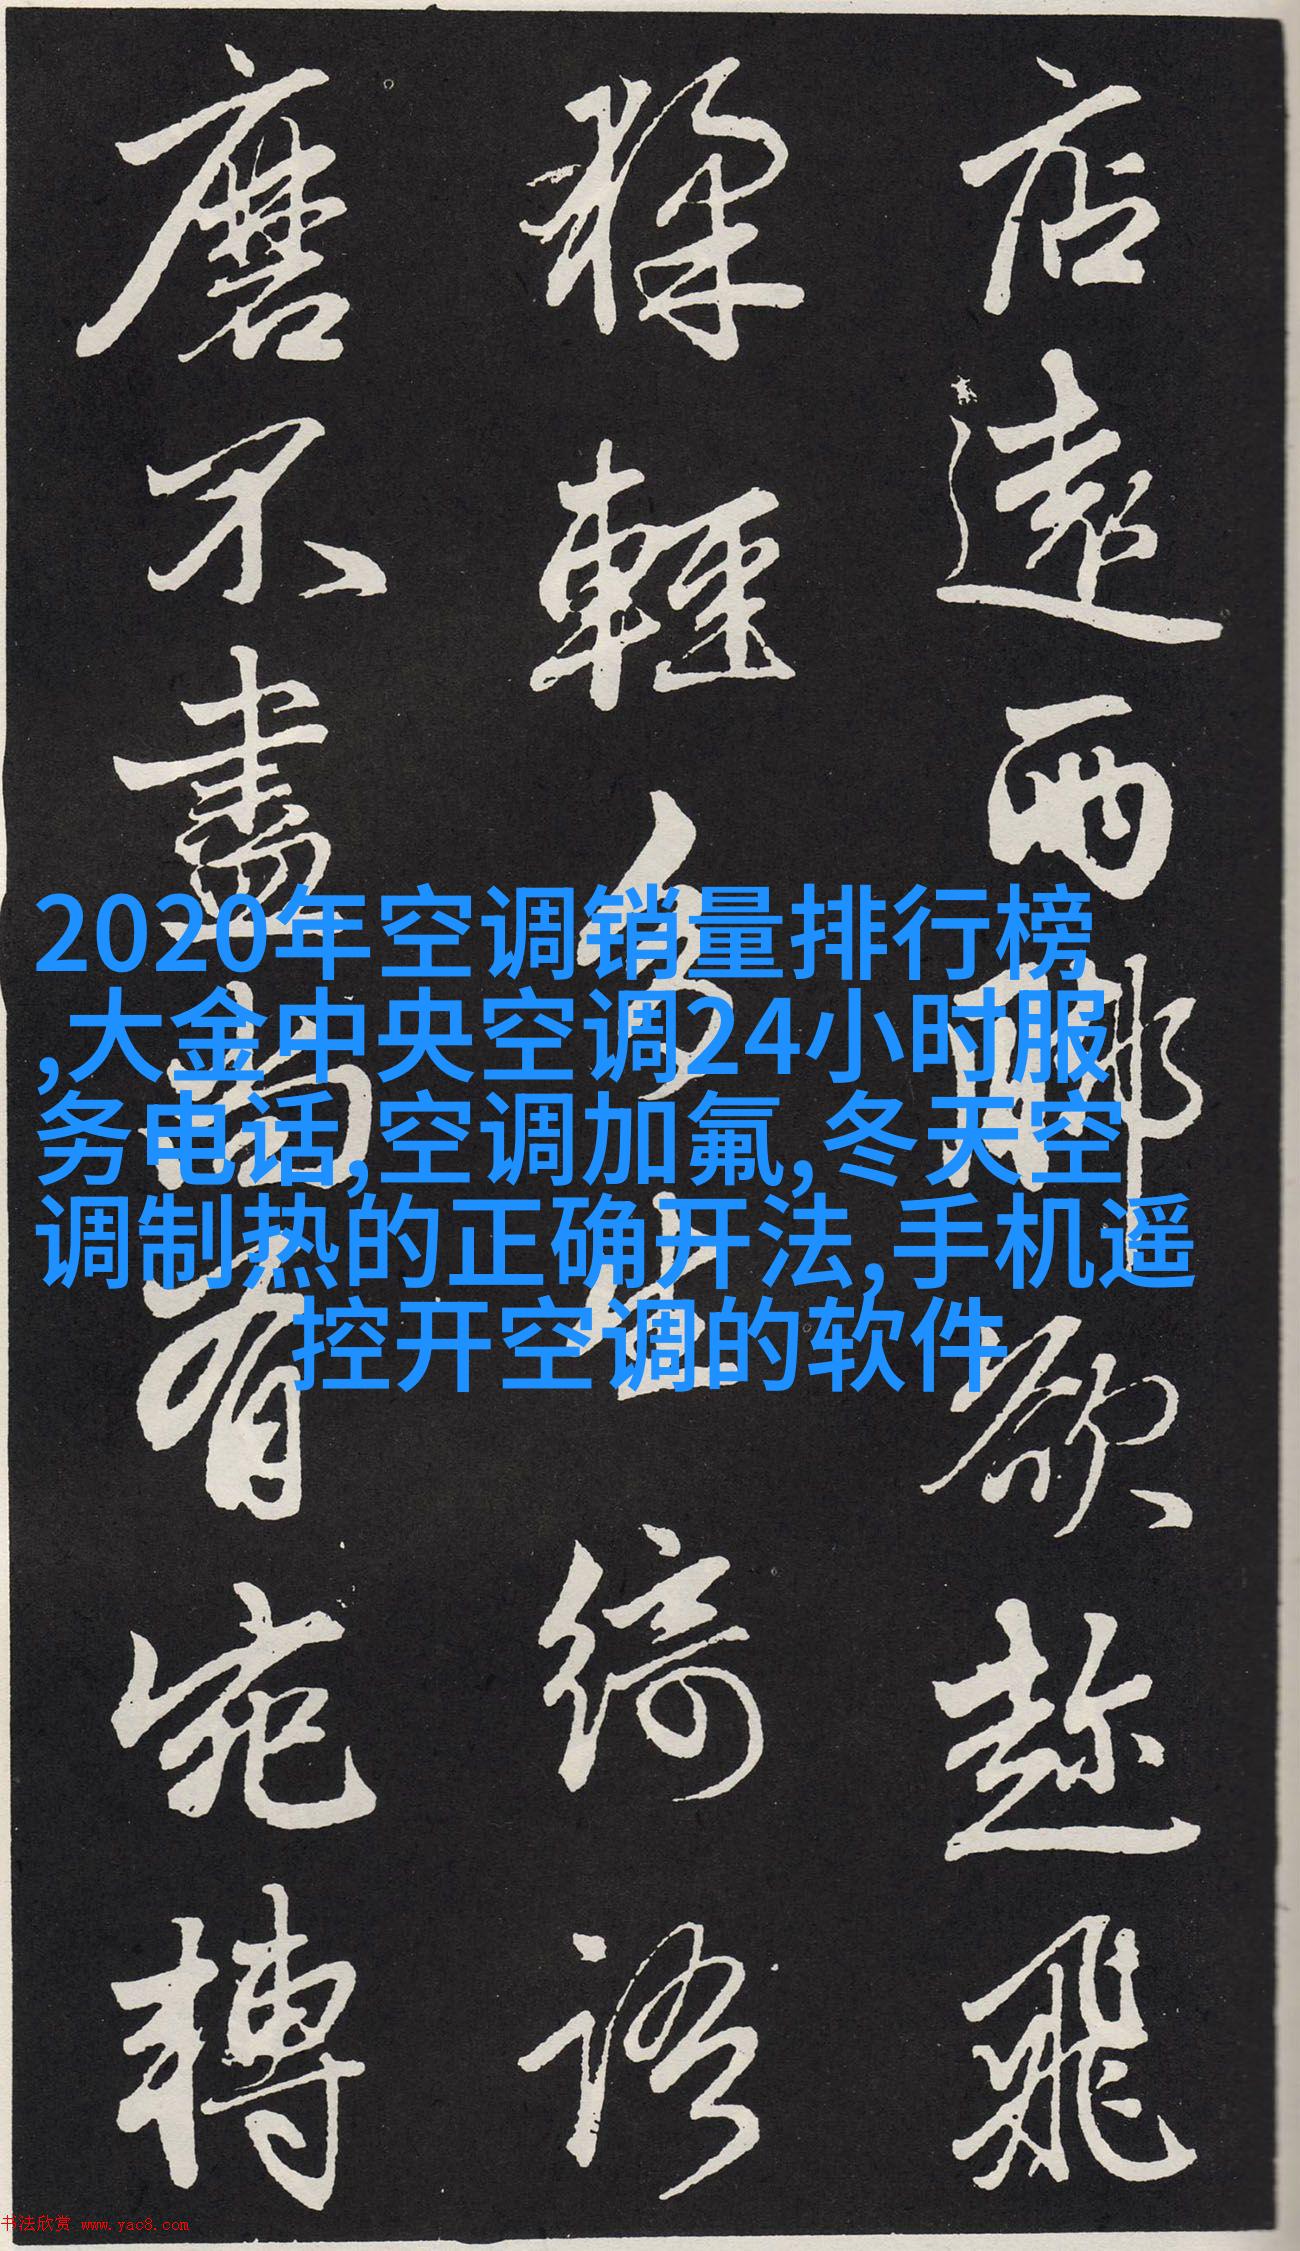 店遠兩聊欲趂飛
輕
綺語
磨不盡尚有宛轉
2020年空调销量排行榜
,大金中央空调24小时服
务电话,空调加氟,冬天空
调制热的正确开法,手机遥
控开空调的软件
书法欣赏 www.yac8.com